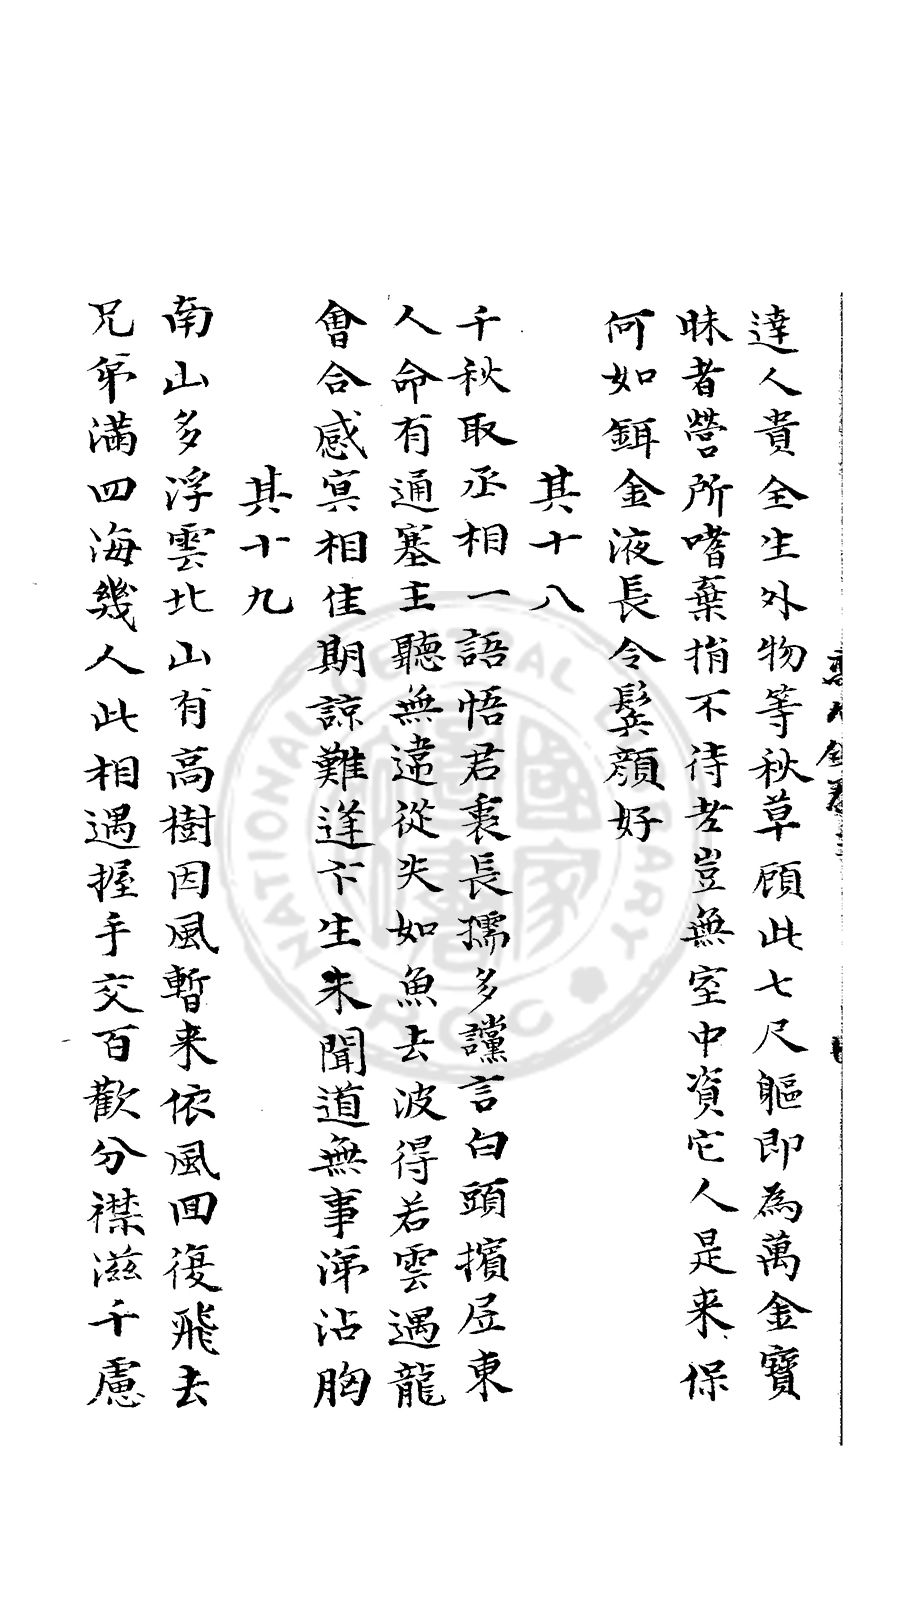 達人貴全生外物等秋草顧此七尺軀即為萬金寶
昧者營所嗜棄捐不待老豈無室中資它人是来保
何如餌金液長令鬓顏好
其十八
千秋取丞相一語悟君衷長孺多讜言白頭擯居東
人命有通塞主聽無違從失如魚去波得若雲遇龍
會合感冥相佳期諒難逢卞生未聞道無事涕沾胸
其十九
南山多浮雲北山有高樹因風暫来依風回復飛去
兄弟滿四海幾人此相遇握手交百歡分襟滋千慮
NATIONAL CENTRAL LIBRARY ROC
國家圖書館